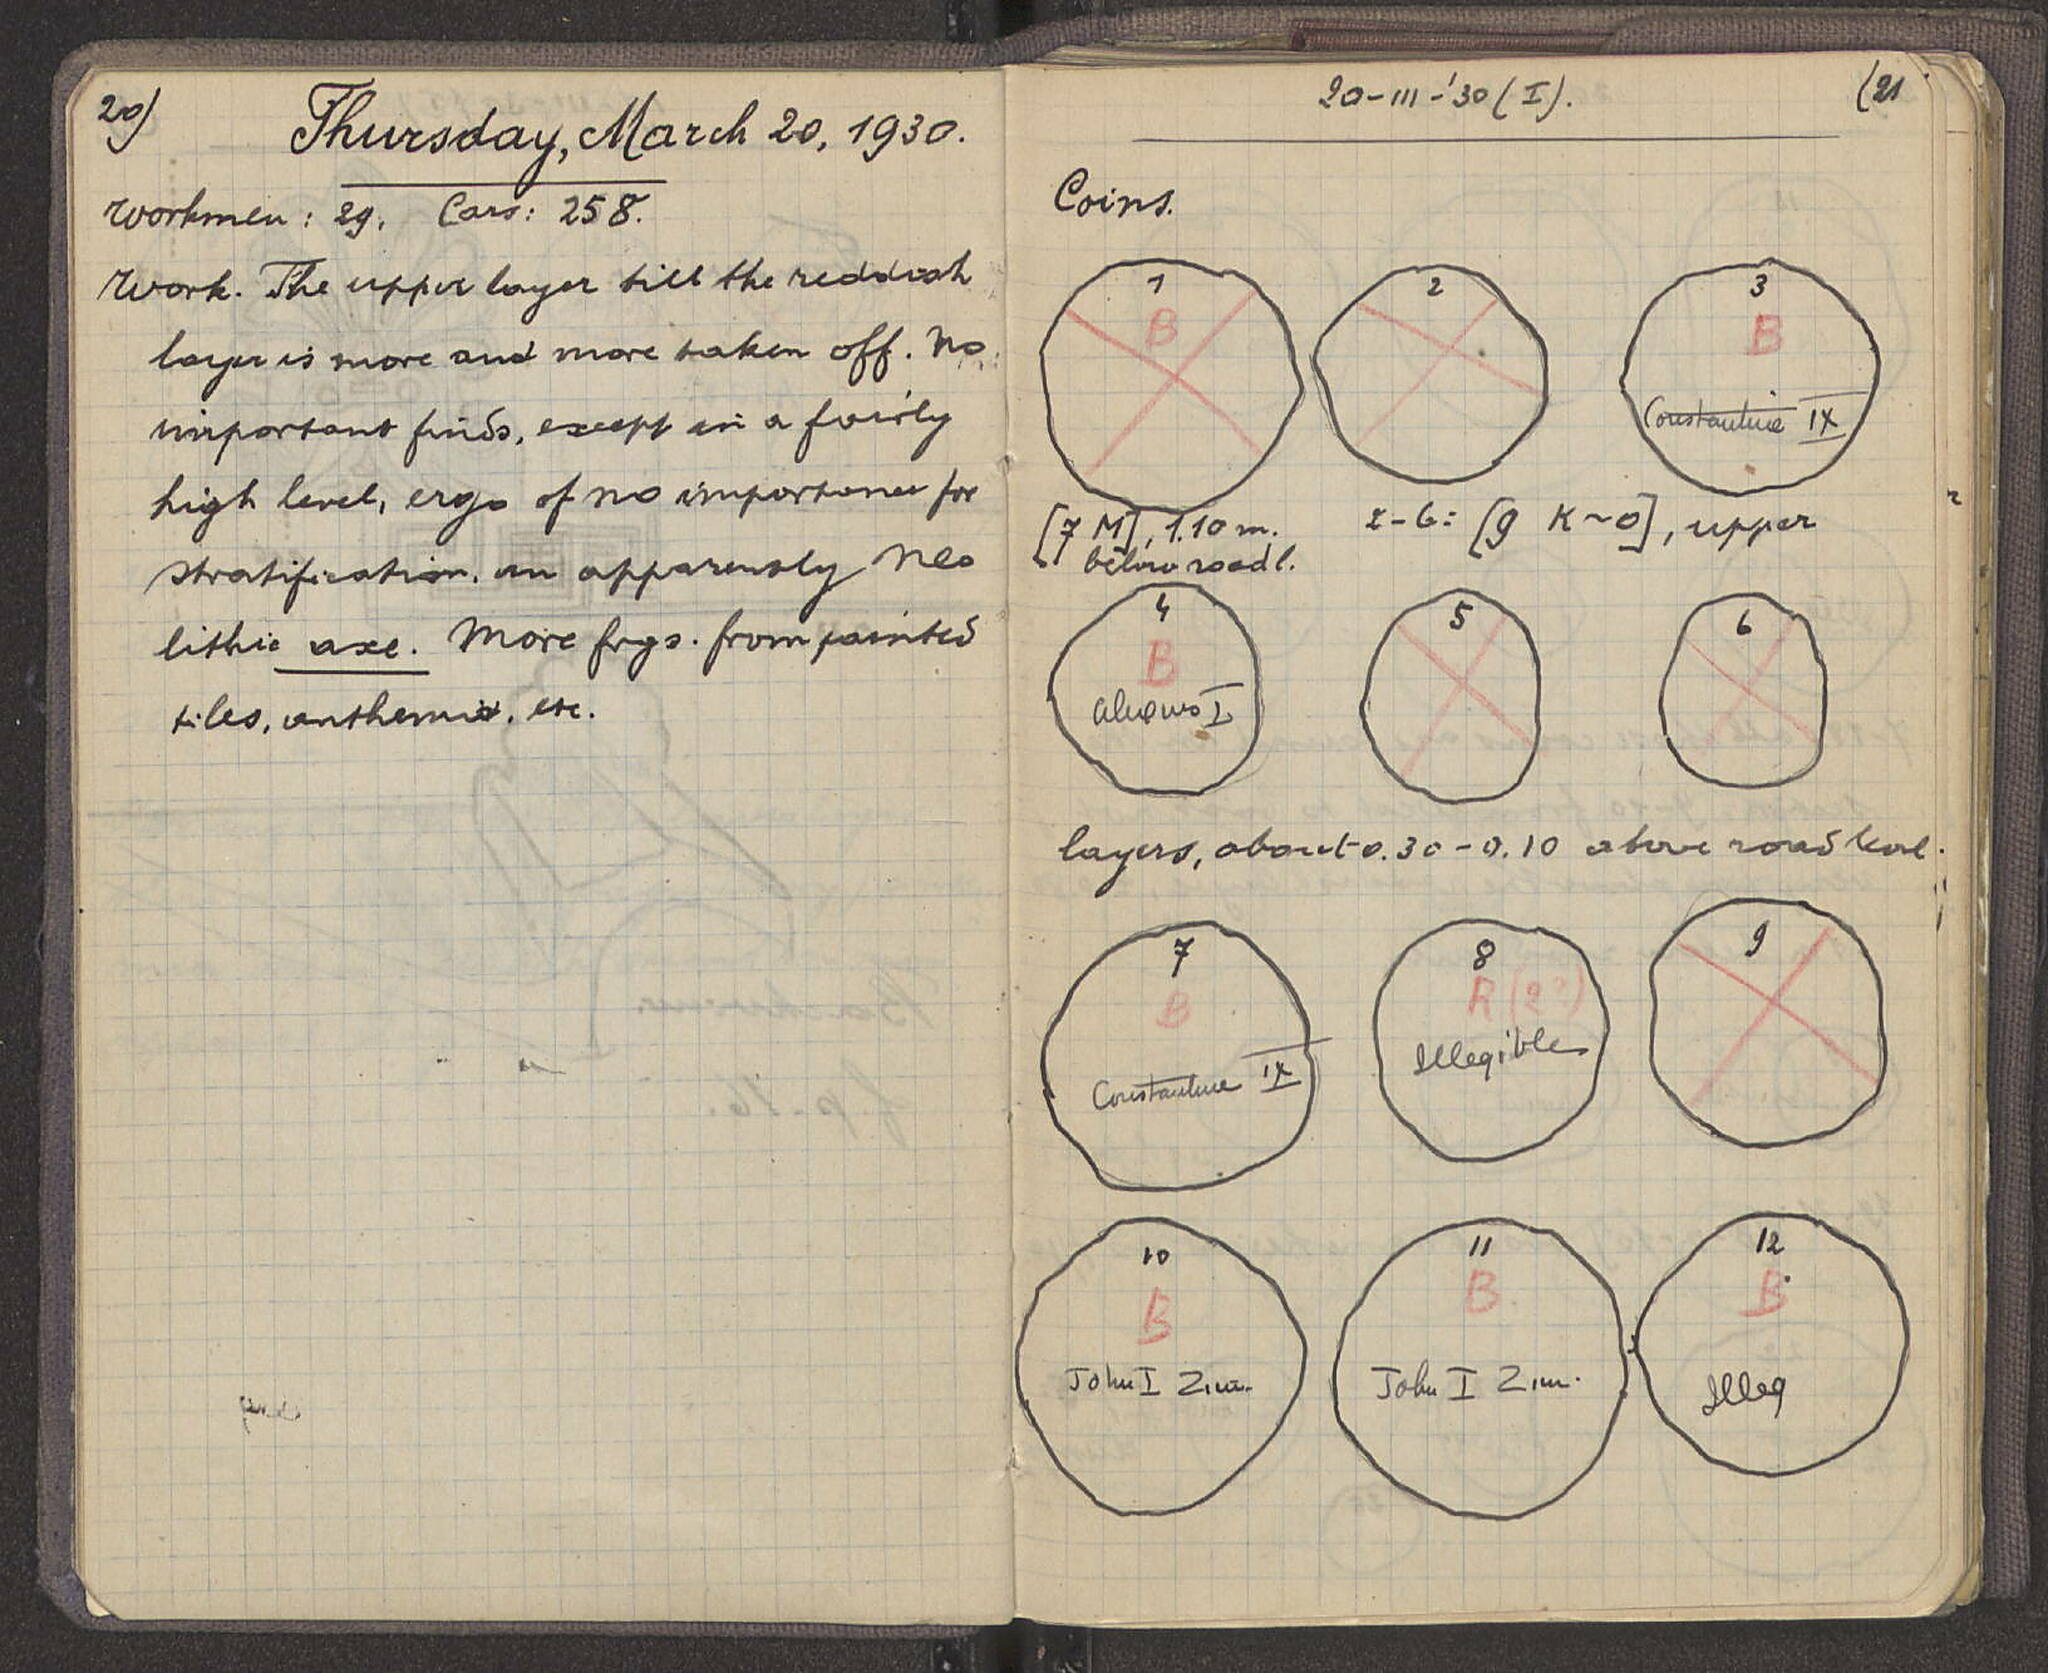 20)
Thursday, March 20, 1930.
Workmen: 29. Cars: 258.
Work. The upper layer till the reddish
layer is more and more taken off. No
important finds, except in a fairly
high level, ergo of no importance for
stratification, an apparently neo
lithic axe. More frgs. from painted
tiles, anthemia, etc.
20-III-'30 (I).
(21
Coins.
1
B
2
3
B
Constantine IX
[7 M], 1.10 m.
below road l.
2-6: [9 K~O], upper
4
B
Alexius I
5
6
layers, about 0.30-0.10 above road level.
7
B
Constantine IX
8
R (2?)
Illegible
9
10
B
John I Zim.
11
B
John I Zim.
12
B
Illeg